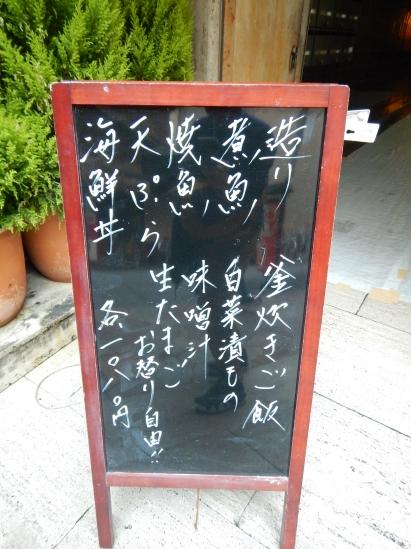 造り 釜炊きご飯
煮魚 白菜漬もの
焼魚 味噌汁
天ぷら 生たまご
お替り自由!!
海鮮丼 各一〇八〇円